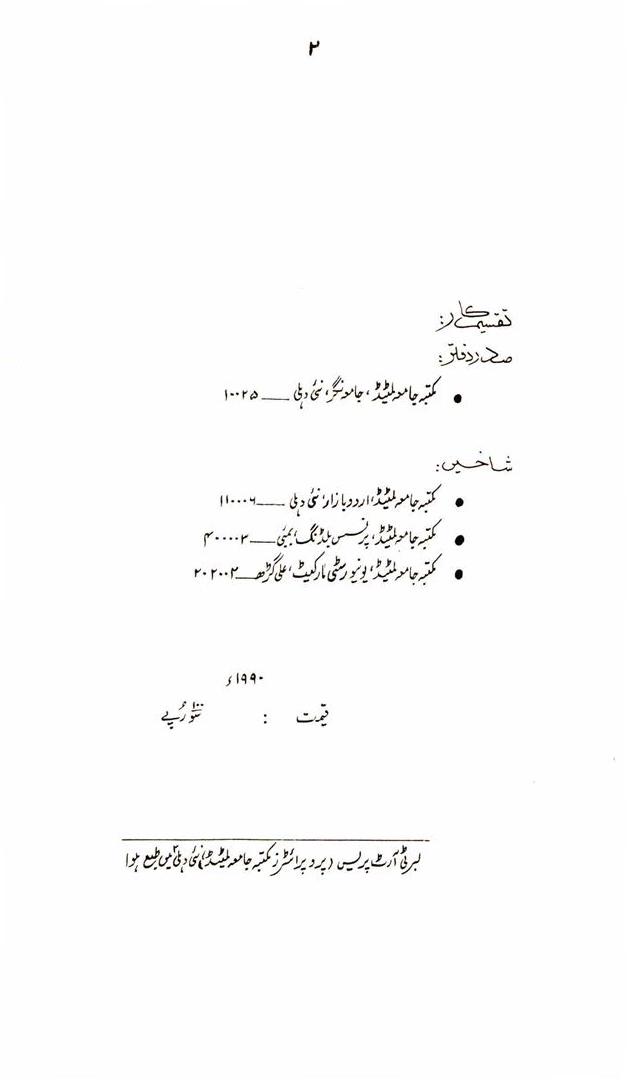 ۲
تقسیم کار:
صدر دفتر:
● مکتبہ جامعہ لمیٹڈ، جامعہ نگر، نئی دہلی ــــ ۱۰۰۲۵
شاخیں:
● مکتبہ جامعہ لمیٹڈ، اردو بازار، نئی دہلی ــــ ۱۱۰۰۰۶
● مکتبہ جامعہ لمیٹڈ، پرنسس بلڈنگ، بمبئی ــــ ۴۰۰۰۰۳
● مکتبہ جامعہ لمیٹڈ، یونیورسٹی مارکیٹ، علی گڑھ ــــ ۲۰۲۰۰۲
۱۹۹۰ء
قیمت : ۱۰۰ سَو رُپے
لبرٹی آرٹ پریس (پروپرائٹرز مکتبہ جامعہ لمیٹڈ) نئی دہلی ۲ میں طبع ہوا